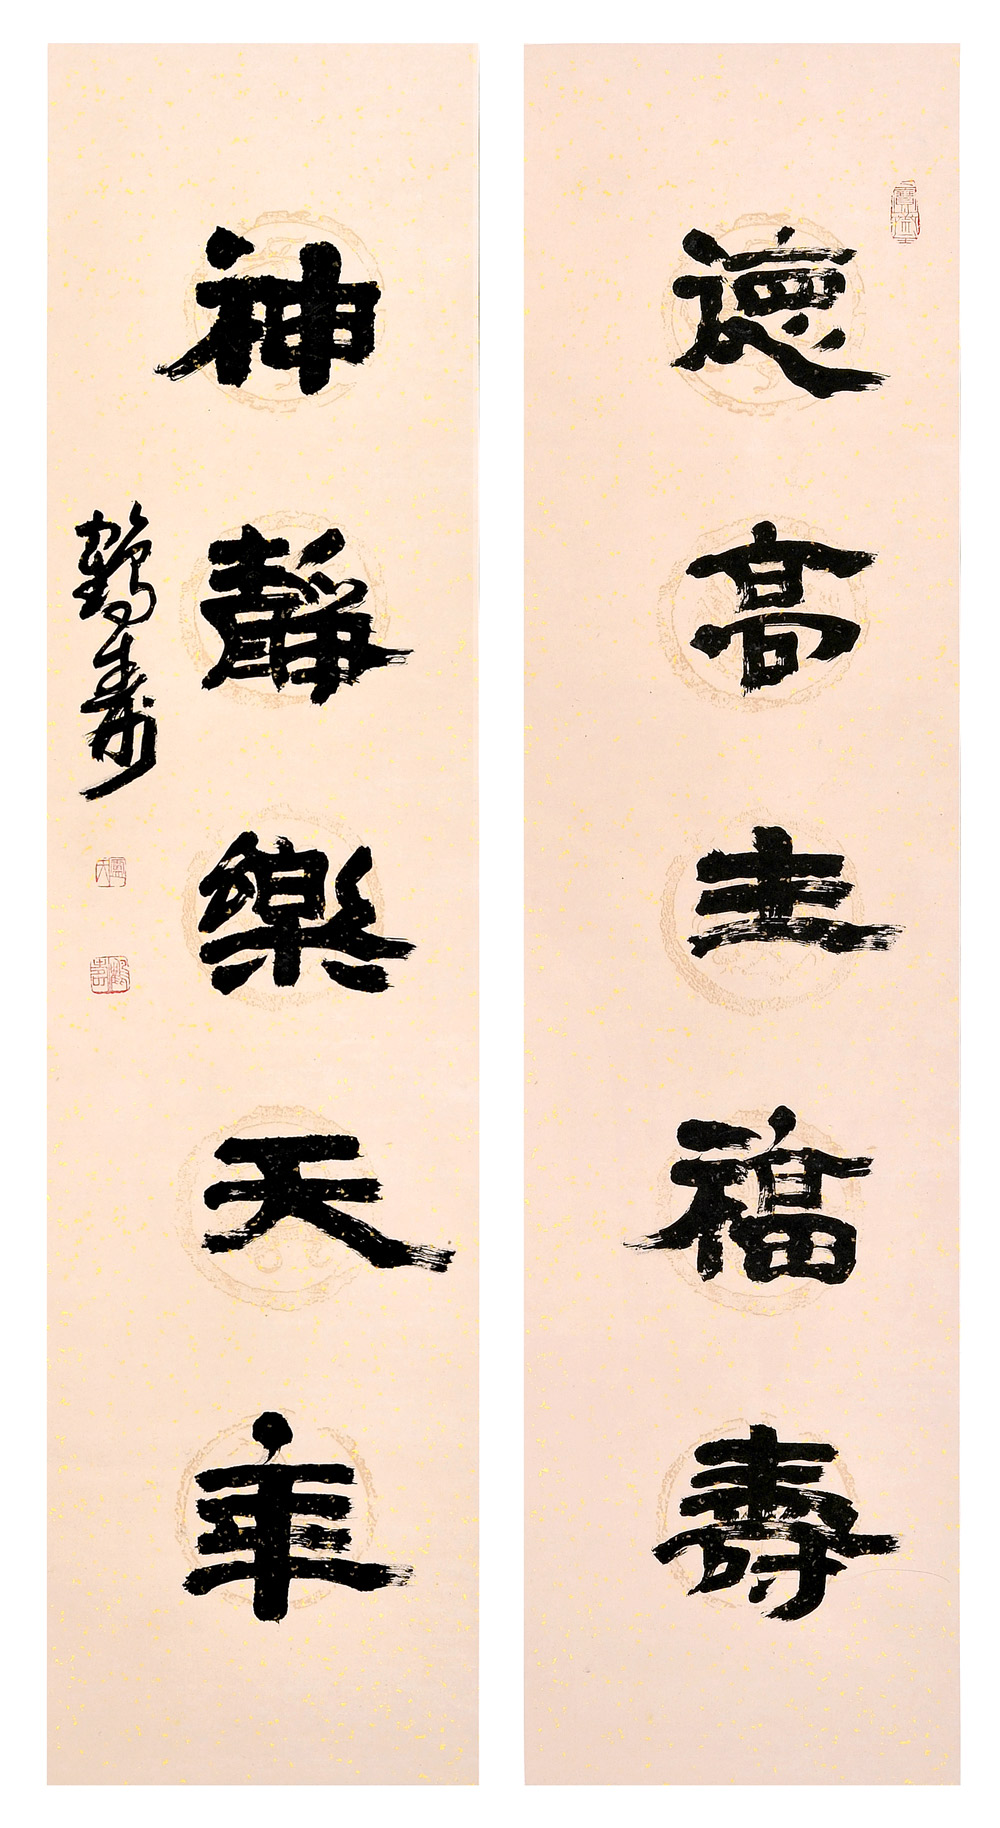 德高生福壽
神靜樂天年
鶴壽